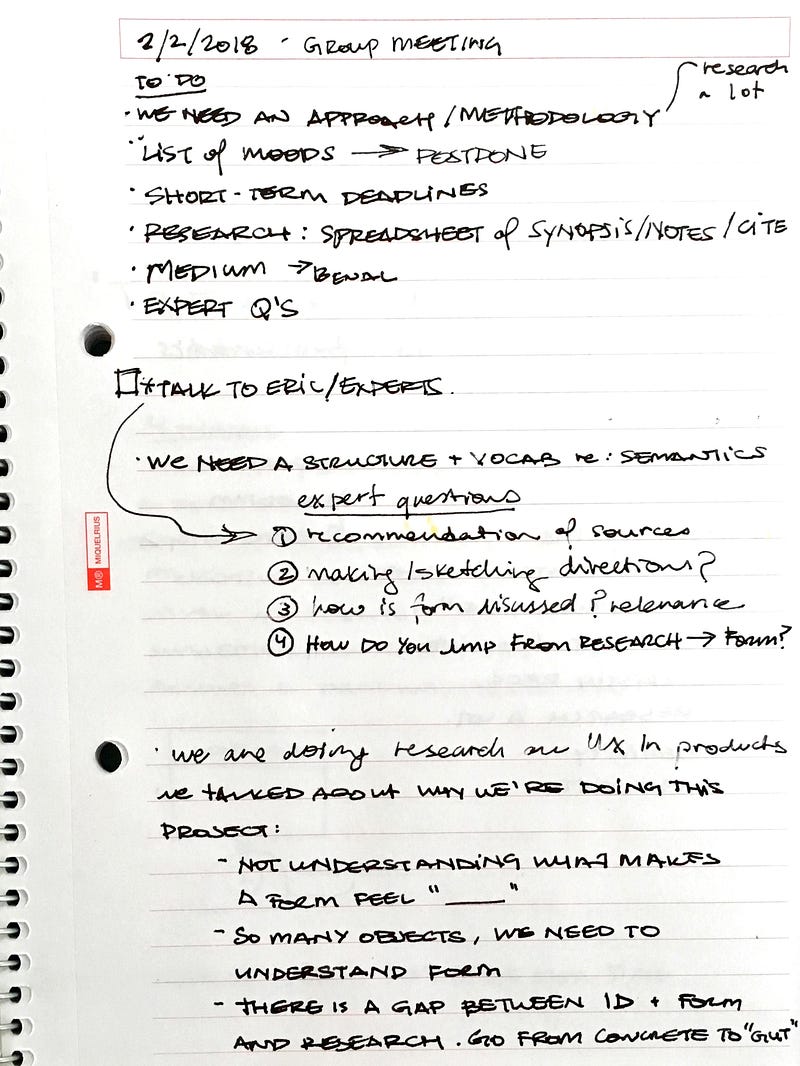 2/2/2018 - GROUP MEETING
TO DO
research
a lot
· WE NEED AN APPROACH / METHODOLOGY
· LIST of MOODS → POSTPONE
· SHORT-TERM DEADLINES
· RESEARCH : SPREADSHEET of SYNOPSIS/NOTES / CITE
· MEDIUM → BENAL
· EXPERT Q'S
* TALK TO ERIC/EXPERTS.
· WE NEED A STRUCTURE + VOCAB re: SEMANTICS
expert questions
① recommendation of sources
② making /sketching directions?
③ how is form disussed ? relenance
④ HOW DO YOU JUMP FROM RESEARCH → FORM?
M® MIQUELRIUS
· we are doing research on UX in products
WE TALKED ABOUT WHY WE'RE DOING THIS
PROJECT:
- NOT UNDERSTANDING WHAT MAKES
A FORM FEEL "____"
- SO MANY OBJECTS, WE NEED TO
UNDERSTAND FORM
- THERE IS A GAP BETWEEN ID + FORM
AND RESEARCH. GO FROM CONCRETE TO "GUT"